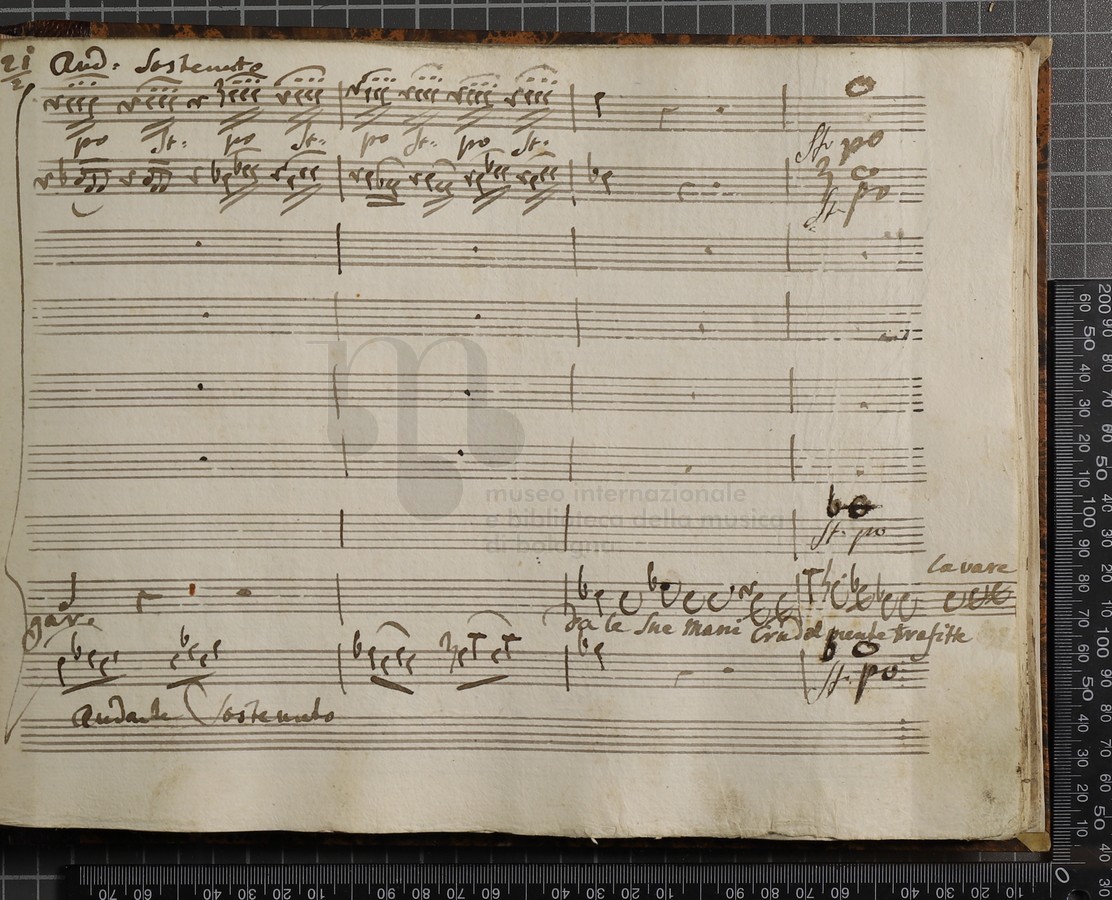 21 And: Sostenuto
po St: po St: po St: po St:
St: po
St: po
museo internazionale
e biblioteca della musica
di bologna
St: po
la vare
gare
Da le Sue mani Crudel mente trafitte
St: po
Andante Sostenuto